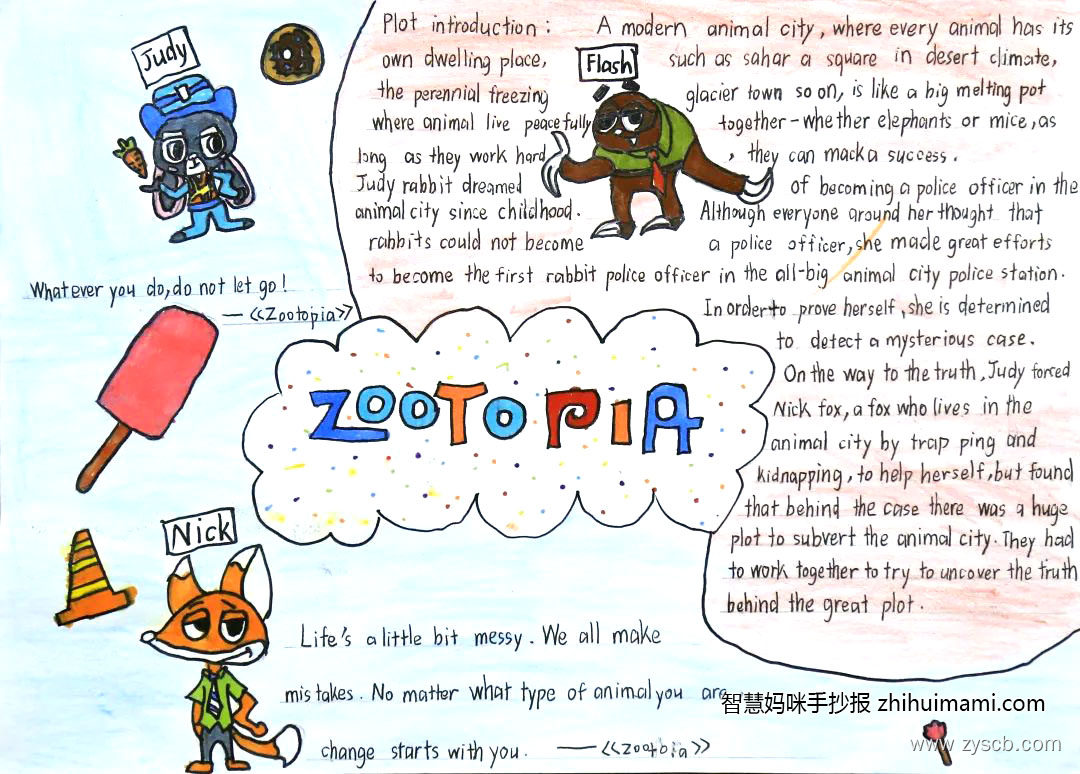 Judy
Plot introduction: A modern animal city, where every animal has its
own dwelling place, such as sahar a square in desert climate,
Flash
the perennial freezing glacier town so on, is like a big melting pot
where animal live peacefully together-whether elephants or mice, as
long as they work hard, they can macka success.
Judy rabbit dreamed of becoming a police officer in the
animal city since childhood. Although everyone around her thought that
rabbits could not become a police officer, she made great efforts
to become the first rabbit police officer in the all-big animal city police station.
Whatever you do, do not let go!
—《Zootopia》
In orderto prove herself, she is determined
to detect a mysterious case.
On the way to the truth, Judy forced
Nick fox, a fox who lives in the
animal city by trap ping and
kidnapping, to help herself, but found
that behind the case there was a huge
plot to subvert the animal city. They had
to work together to try to uncover the truth
behind the great plot.
ZOOTOPIA
Nick
Life's a little bit messy. We all make
mistakes. No matter what type of animal you are
change starts with you. —《Zootopia》
智慧妈咪手抄报 zhihuimami.com
www.zyscb.com